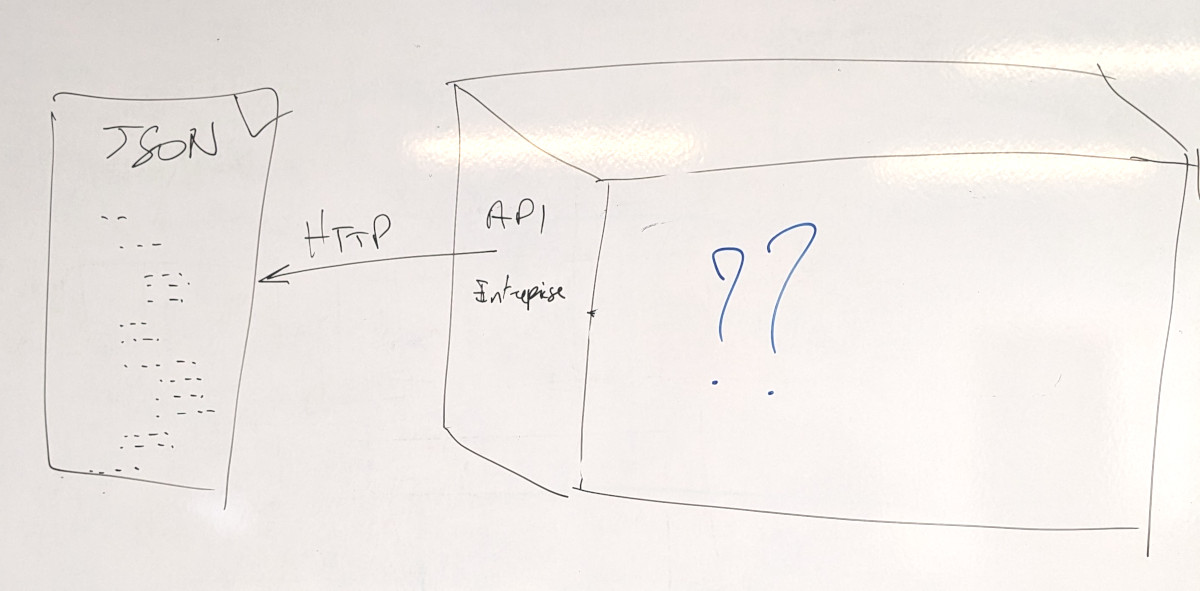 JSON
HTTP
API
Entreprise
??